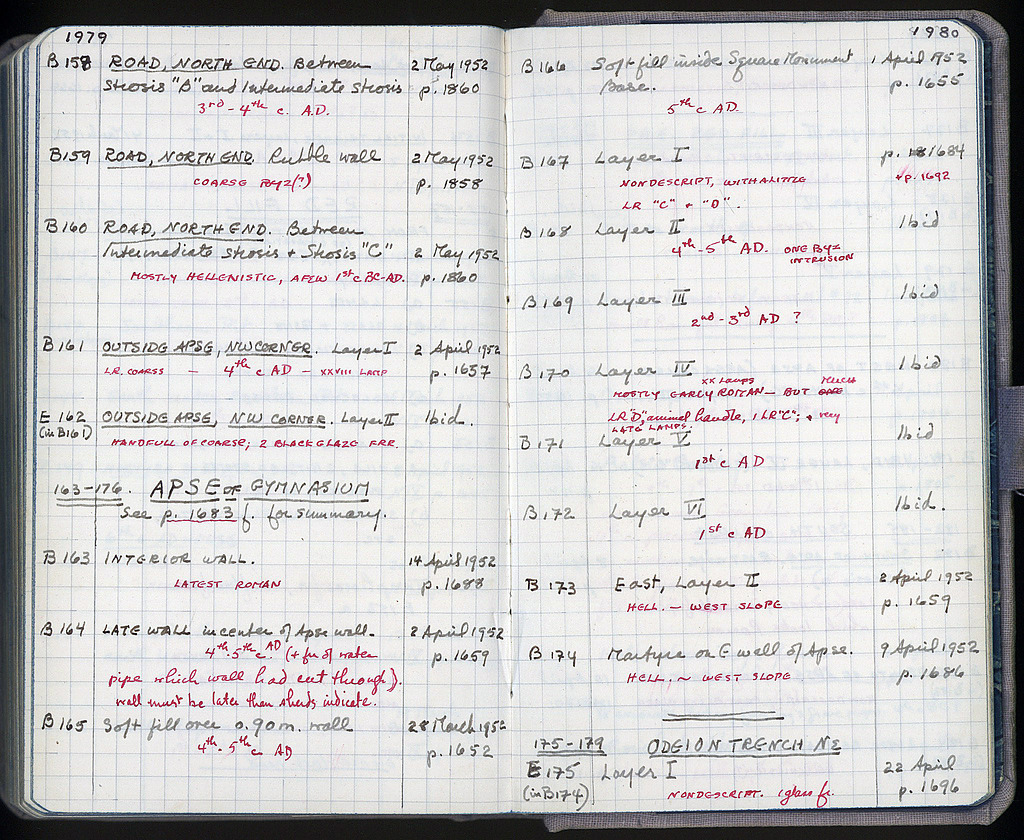 1979
B 158 ROAD, NORTH END. Between 2 May 1952
Strosis "B" and Intermediate Strosis p. 1860
3rd - 4th c. A.D.
B159 ROAD, NORTH END. Rubble wall 2 May 1952
COARSE BYZ(?) p. 1858
B160 ROAD, NORTH END. Between
Intermediate Strosis + Strosis "C" 2 May 1952
MOSTLY HELLENISTIC, A FEW 1st c BC-AD. p. 1860
B161 OUTSIDE APSE, NW CORNER. Layer I 2 April 1952
LR. COARSE — 4th c AD — XXVIII LAMP p. 1657
E 162 OUTSIDE APSE, NW CORNER. Layer II Ibid.
(in B161) HANDFULL OF COARSE; 2 BLACK GLAZE FRR.
163-176. APSE OF GYMNASIUM
See p. 1683 f. for summary.
B163 INTERIOR WALL. 14 April 1952
LATEST ROMAN p. 1688
B 164 LATE WALL in center of Apse wall. 2 April 1952
4th-5th c. AD (+ fr. of water p. 1659
pipe which wall had cut through).
wall must be later than sherds indicate.
B 165 Soft fill over 0.90 m. wall 28 March 1952
4th-5th c AD p. 1652
1980
B 166 Soft fill inside Square Monument 1 April 1952
Base. p. 1655
5th c AD.
B 167 Layer I p. 1684
NONDESCRIPT, WITH A LITTLE +p. 1692
LR "C" + "D".
B 168 Layer II Ibid
4th-5th AD. ONE BYZ
INTRUSION
B 169 Layer III Ibid
2nd - 3rd AD ?
B 170 Layer IV Ibid
XX Lamps MUCH
MOSTLY EARLY ROMAN — BUT
LR "D", animal handle, 1 LR "C"; + very
LATE LAMPS
B 171 Layer V Ibid
1st c AD
B 172 Layer VI Ibid.
1st c AD
B 173 East, Layer II 2 April 1952
HELL. — WEST SLOPE p. 1659
B 174 Martyra on E wall of Apse. 9 April 1952
HELL. ~ WEST SLOPE p. 1686
175-179 ODEION TRENCH NE
E 175 Layer I 22 April
(in B174) NONDESCRIPT. 1 glass fr. p. 1696